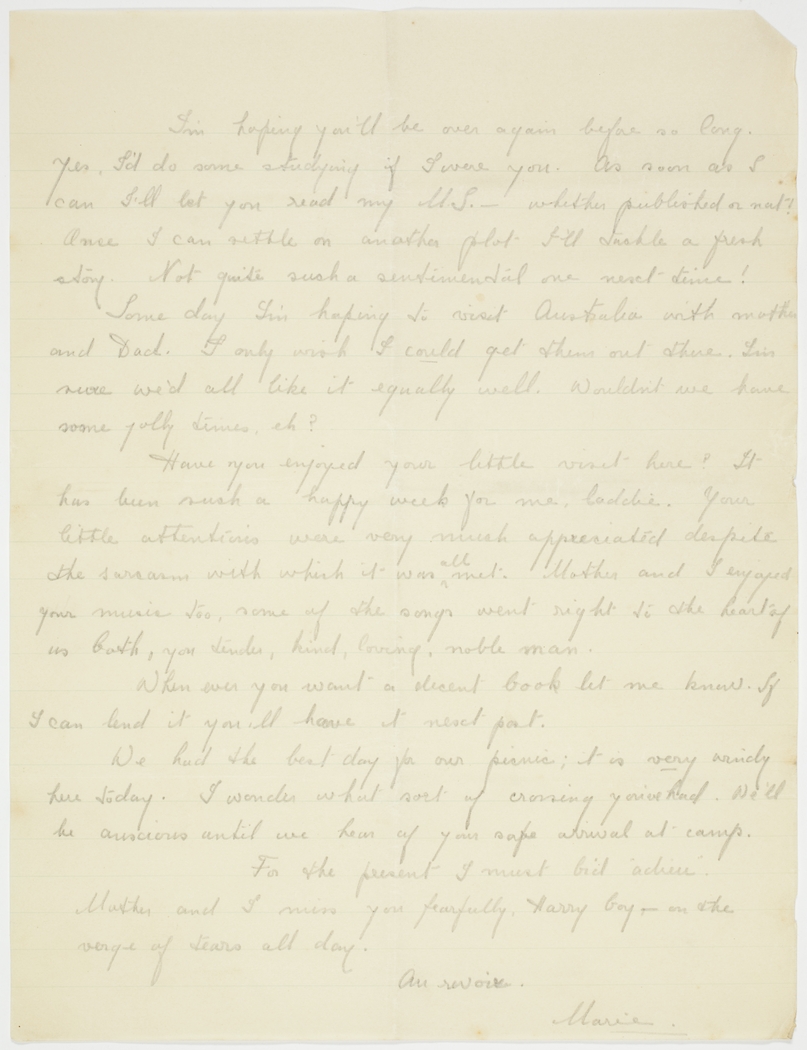 I'm hoping you'll be over again before so long.
Yes, I'd do some studying if I were you. As soon as I
can I'll let you read my M.S. — whether published or not!
Once I can settle on another plot I'll tackle a fresh
story. Not quite such a sentimental one next time!
Some day I'm hoping to visit Australia with mother
and Dad. I only wish I could get them out there. I'm
sure we'd all like it equally well. Wouldn't we have
some jolly times, eh?
Have you enjoyed your little visit here? It
has been such a happy week for me, laddie. Your
little attentions were very much appreciated despite
the sarcasm with which it was all met. Mother and I enjoyed
your music too, some of the songs went right to the heart of
us both, you tender, kind, loving, noble man.
When ever you want a decent book let me know. If
I can lend it you'll have it next post.
We had the best day for our picnic; it is very windy
here today. I wonder what sort of crossing you've had. We'll
be anxious until we hear of your safe arrival at camp.
For the present I must bid "adieu".
Mother and I miss you fearfully, Harry boy — on the
verge of tears all day.
Au revoir.
Marie.